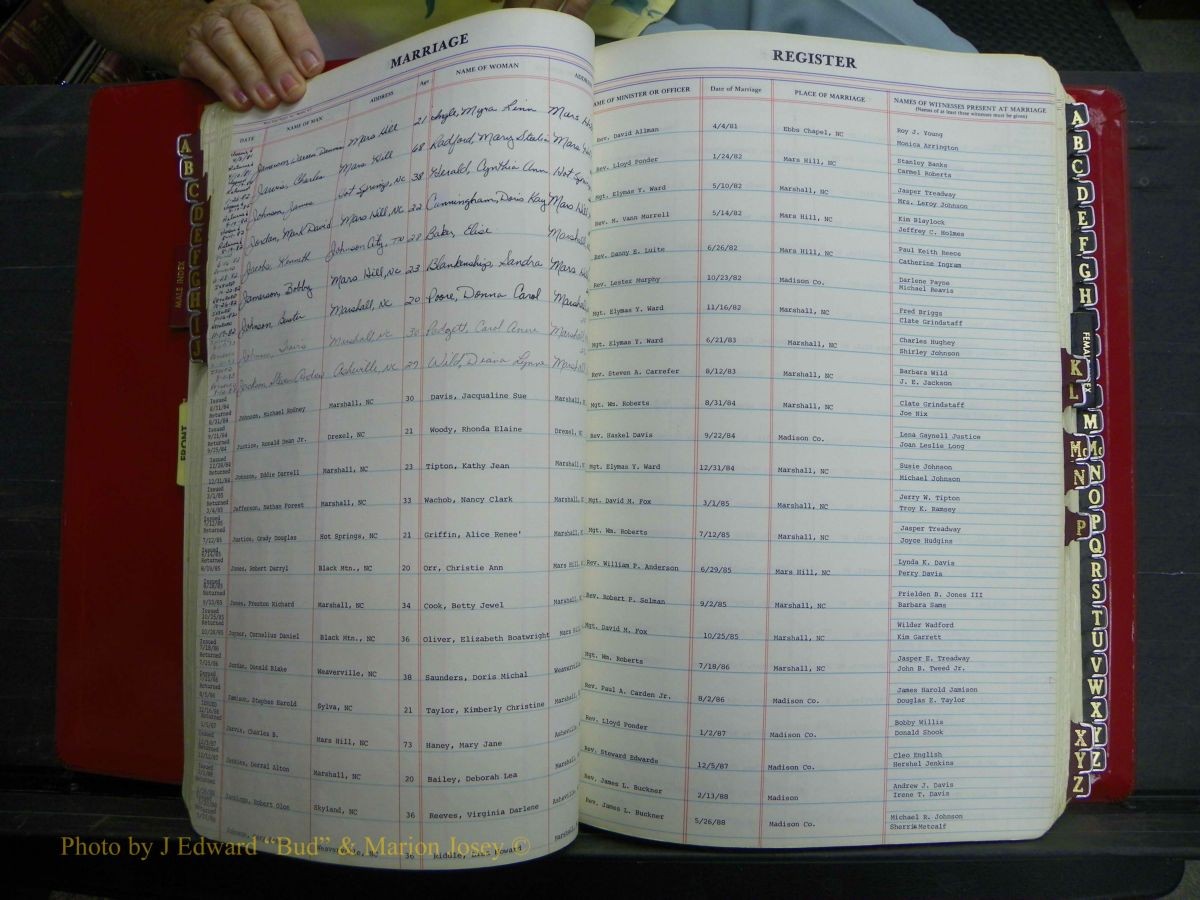 MARRIAGE
DATE NAME OF MAN ADDRESS Age NAME OF WOMAN
Mars Hill 21 Ingle, Myra Linn Mars
Jarvis, Charles Mars Hill 68 Radford, Mary Mars
Johnson, James Hot Springs, NC 38 Herald, Cynthia Ann Hot
Jordan, Mark David Mars Hill, NC 22 Cunningham, Doris Kay Mars Hill,
Jacobs, Kenneth Johnson City, TN 28 Baker, Elise
Jamerson, Bobby Mars Hill, NC 23 Blankenship, Sandra Mars
Johnson, Buster Marshall, NC 20 Poore, Donna Carol
Johnson, Travis Marshall, NC 30 Padgett, Carol Anne
Asheville, NC 27 Wild, Deana Lynne
Issued
8/11/84
Returned
8/31/84
Johnson, Michael Rodney Marshall, NC 30 Davis, Jacqualine Sue Marshall,
Issued
9/21/84
Returned
9/25/84
Justice, Ronald Dean Jr. Drexel, NC 21 Woody, Rhonda Elaine Drexel,
Issued
12/28/84
Returned
12/31/84
Johnson, Eddie Darrell Marshall, NC 23 Tipton, Kathy Jean Marshall,
Issued
3/1/85
Returned
3/4/85
Jefferson, Nathan Forest Marshall, NC 33 Wachob, Nancy Clark Marshall,
Issued
7/12/85
Returned
7/12/85
Justice, Grady Douglas Hot Springs, NC 21 Griffin, Alice Renee' Marshall,
Jones, Robert Darryl Black Mtn., NC 20 Orr, Christie Ann Mars Hill,
Jones, Preston Richard Marshall, NC 34 Cook, Betty Jewel Marshall,
Joyner, Cornelius Daniel Black Mtn., NC 36 Oliver, Elizabeth Boatwright Mars
Issued
7/18/86
Returned
7/25/86
Jordan, Donald Blake Weaverville, NC 38 Saunders, Doris Michal Weaverville
Jamison, Stephen Harold Sylva, NC 21 Taylor, Kimberly Christine Marshall,
Jarvis, Charles B. Mars Hill, NC 73 Haney, Mary Jane
Jenkins, Derral Alton Marshall, NC 20 Bailey, Deborah Lea
Jennings, Robert Olon Skyland, NC 36 Reeves, Virginia Darlene
36
REGISTER
NAME OF MINISTER OR OFFICER Date of Marriage PLACE OF MARRIAGE NAMES OF WITNESSES PRESENT AT MARRIAGE
(Names of at least three witnesses must be given)
Rev. David Allman 4/4/81 Ebbs Chapel, NC Roy J. Young
Monica Arrington
Rev. Lloyd Ponder 1/24/82 Mars Hill, NC Stanley Banks
Carmel Roberts
Mgt. Elymas Y. Ward 5/10/82 Marshall, NC Jasper Treadway
Mrs. Leroy Johnson
Rev. M. Vann Murrell 5/14/82 Mars Hill, NC Kim Blaylock
Jeffrey C. Holmes
Rev. Danny E. Luite 6/26/82 Mars Hill, NC Paul Keith Reece
Catherine Ingram
Rev. Lester Murphy 10/23/82 Madison Co. Darlene Payne
Michael Reavis
Mgt. Elymas Y. Ward 11/16/82 Marshall, NC Fred Briggs
Clate Grindstaff
Mgt. Elymas Y. Ward 6/21/83 Marshall, NC Charles Hughey
Shirley Johnson
Rev. Steven A. Carrefer 8/12/83 Marshall, NC Barbara Wild
J. E. Jackson
Mgt. Wm. Roberts 8/31/84 Marshall, NC Clate Grindstaff
Joe Nix
Rev. Haskel Davis 9/22/84 Madison Co. Lena Gaynell Justice
Joan Leslie Long
Mgt. Elymas Y. Ward 12/31/84 Marshall, NC Susie Johnson
Michael Johnson
Mgt. David M. Fox 3/1/85 Marshall, NC Jerry W. Tipton
Troy K. Ramsey
Mgt. Wm. Roberts 7/12/85 Marshall, NC Jasper Treadway
Joyce Hudgins
Rev. William P. Anderson 6/29/85 Mars Hill, NC Lynda K. Davis
Perry Davis
Rev. Robert P. Selman 9/2/85 Marshall, NC Frielden B. Jones III
Barbara Sams
Mgt. David M. Fox 10/25/85 Marshall, NC Wilder Wadford
Kim Garrett
Mgt. Wm. Roberts 7/18/86 Marshall, NC Jasper E. Treadway
John B. Tweed Jr.
Rev. Paul A. Carden Jr. 8/2/86 Madison Co. James Harold Jamison
Douglas E. Taylor
Rev. Lloyd Ponder 1/2/87 Madison Co. Bobby Willis
Donald Shook
Rev. Steward Edwards 12/5/87 Madison Co. Cleo English
Hershel Jenkins
Rev. James L. Buckner 2/13/88 Madison Andrew J. Davis
Irene T. Davis
Rev. James L. Buckner 5/26/88 Madison Co. Michael R. Johnson
Sherrie Metcalf
A
B
C
D
E
F
G
H
I
J
MALE INDEX
FRONT
A
B
C
D
E
F
G
H
K
L
M
Mc
N
O
P
Q
R
S
T
U
V
W
X
Y
Z
Mc
N
P
XYZ
Photo by J Edward “Bud” & Marion Josey ©